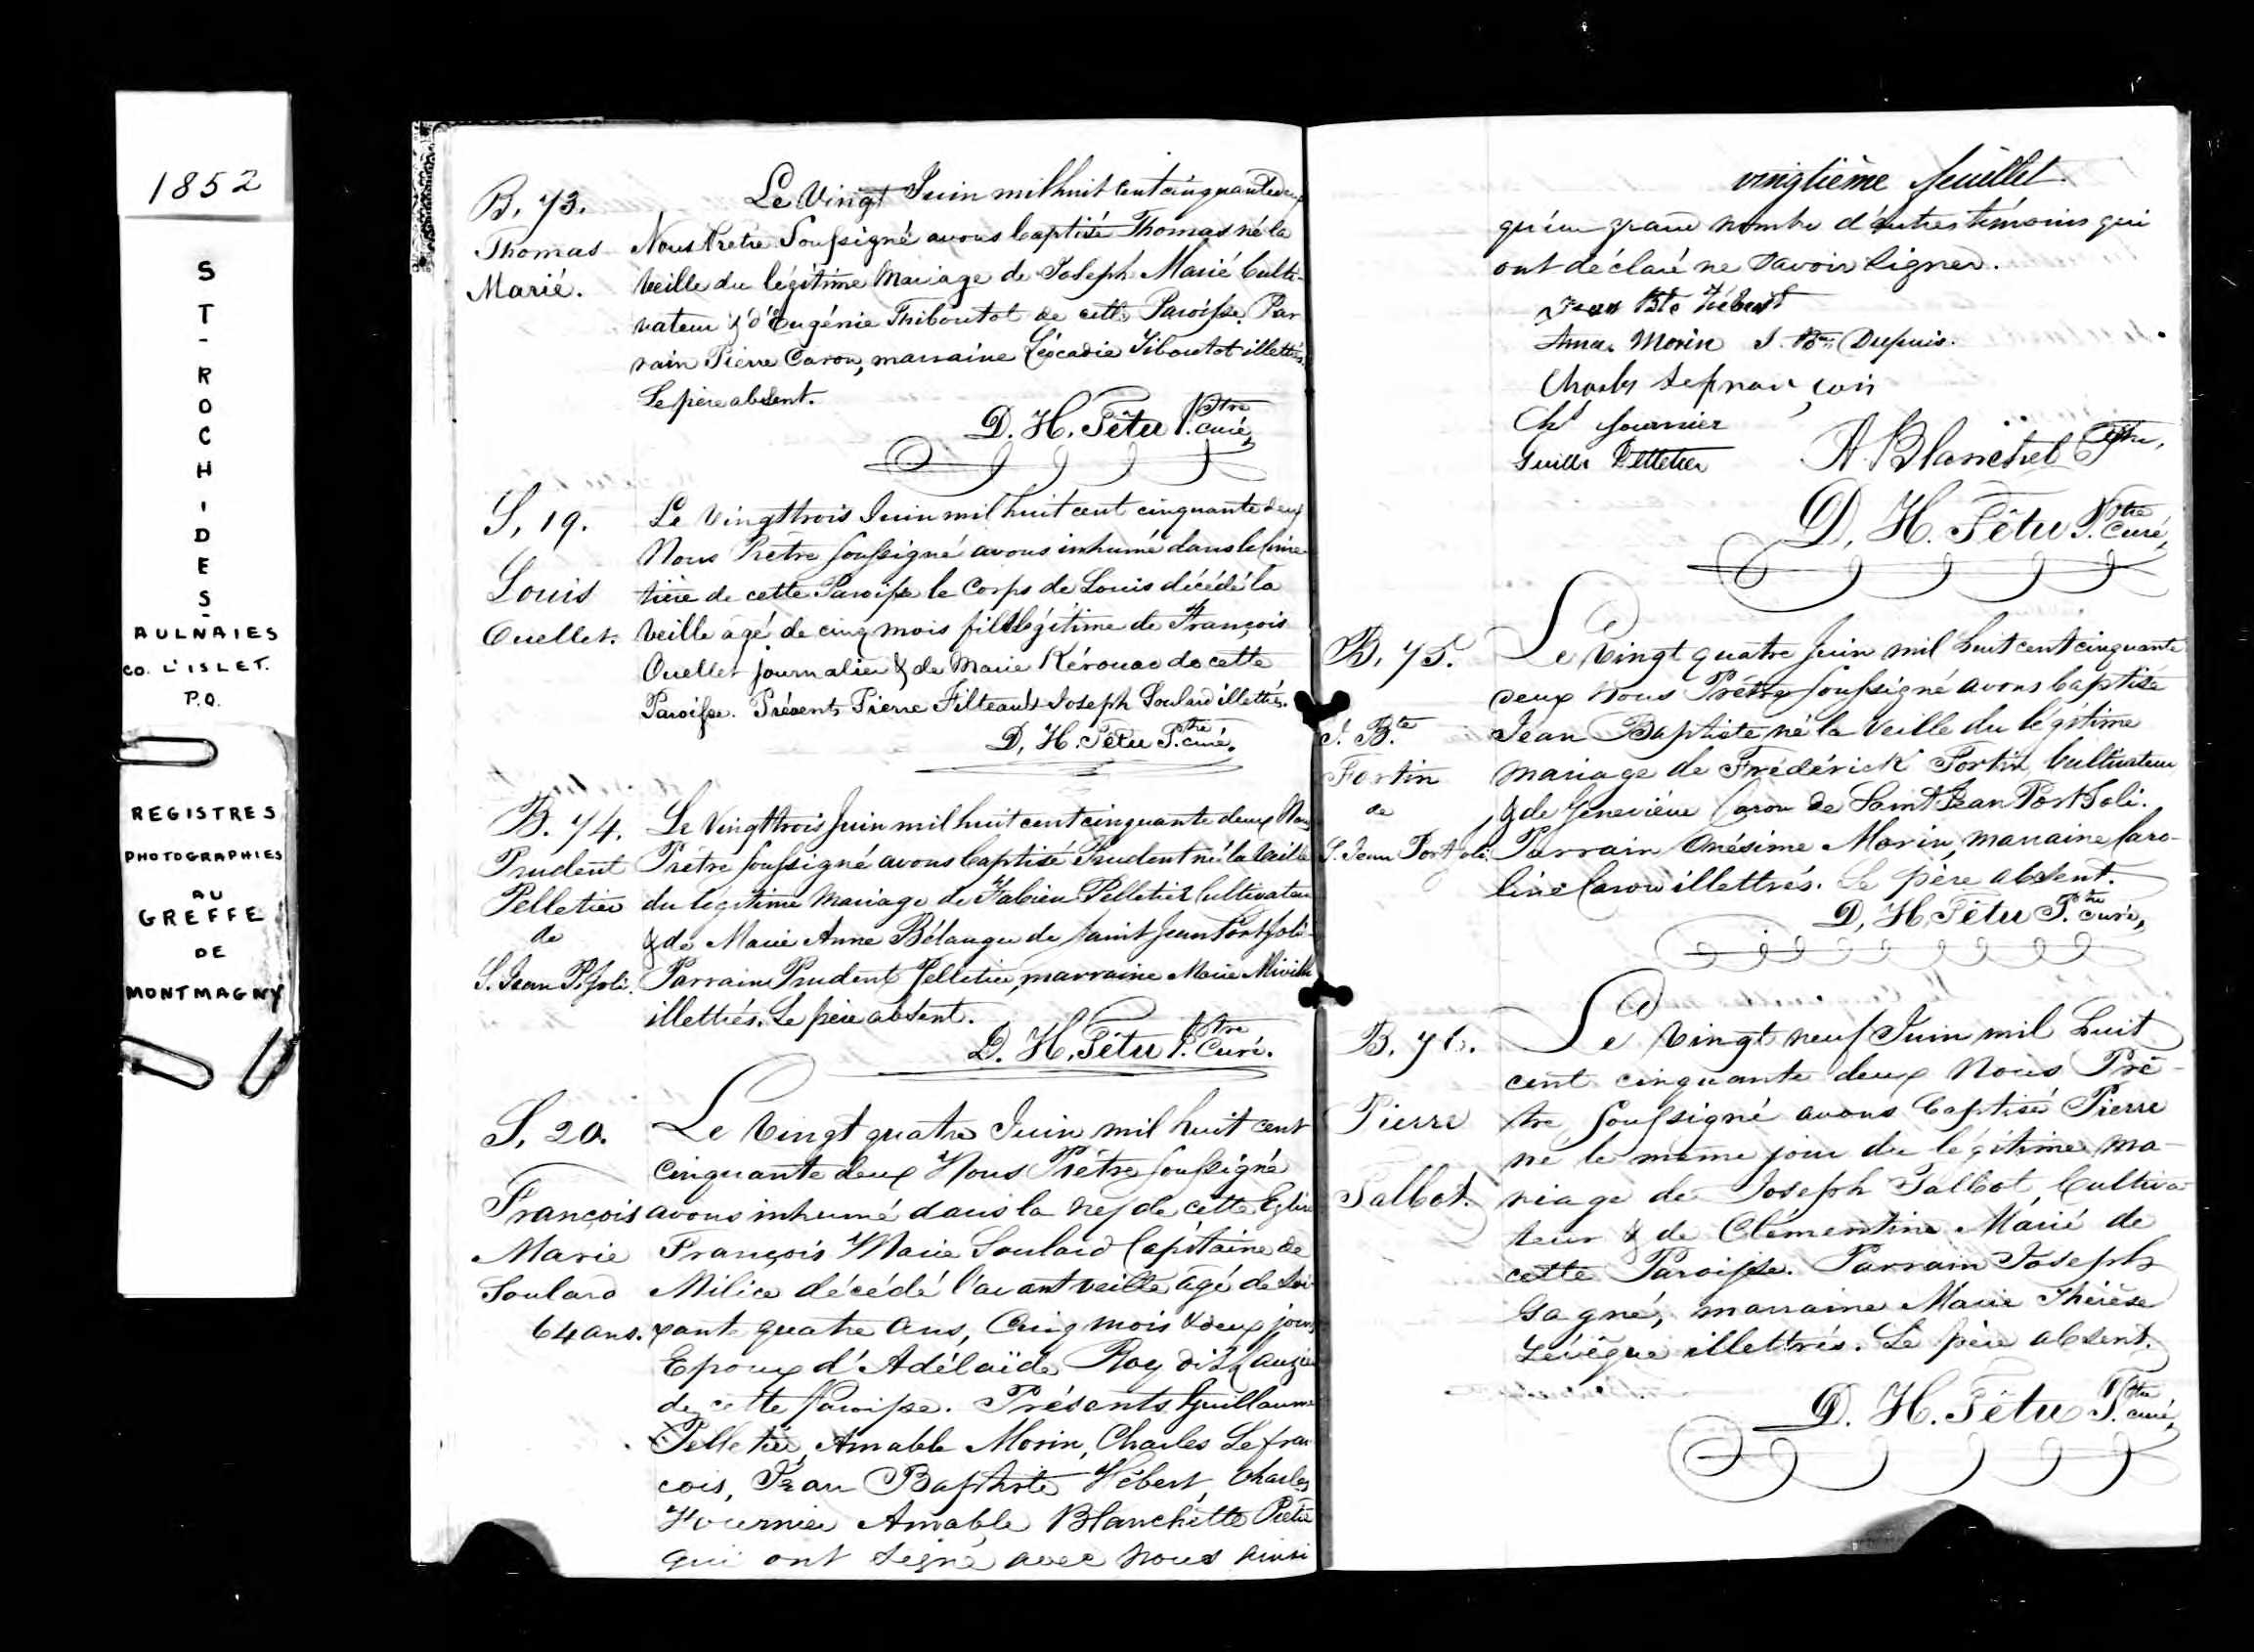 1852
ST-ROCH-DES-
AULNAIES
CO. L'ISLET.
P.Q.
REGISTRES
PHOTOGRAPHIES
AU
GREFFE
DE
MONTMAGNY
B. 73.
Thomas
Marié.
Le Vingt Juin mil huit cent cinquante deux
Nous Prêtre Soussigné avons baptisé Thomas né la
veille du légitime mariage de Joseph Marié Culti-
vateur & d'Eugénie Thiboutot de cette Paroisse. Par
rain Pierre Caron, marraine Léocadie Tiboutot illettrés.
Le père absent.
D. H. Têtu Ptre curé,
S. 19.
Louis
Ouellet.
Le Vingt trois Juin mil huit cent cinquante deux
Nous Prêtre soussigné avons inhumé dans le Cime
tière de cette Paroisse le Corps de Louis décédé la
veille âgé de cinq mois fils légitime de François
Ouellet journalier & de Marie Kérouac de cette
Paroisse. Présents Pierre Filteau & Joseph Soulard illettrés.
D. H. Têtu Ptre curé.
B. 74.
Prudent
Pelletier
de
S. Jean P. Joli.
Le Vingt trois Juin mil huit cent cinquante deux Nous
Prêtre soussigné avons baptisé Prudent né la veille
du légitime mariage de Fabien Pelletier Cultivateur
& de Marie Anne Bélanger de Saint Jean Port Joli-
Parrain Prudent Pelletier, marraine Marie Miville
illettrés. Le père absent.
D. H. Têtu Ptre Curé.
S. 20.
François
Marie
Soulard
64 ans.
Le Vingt quatre Juin mil huit cent
cinquante deux Nous Prêtre soussigné
avons inhumé dans la nef de cette Eglise
François Marie Soulard Capitaine de
Milice décédé l'avant veille âgé de soi
xante quatre ans, Cinq mois & deux jours
Epoux d'Adélaïde Roy dit Lauzier
de cette Paroisse. Présents Guillaume
Pelletier, Amable Morin, Charles Lefran
cois, Jean Baptiste Hébert, Charles
Fournier Amable Blanchette Prêtre
qui ont signé avec nous ainsi
vingtième feuillet
qu'un grand nombre d'autres témoins qui
ont déclaré ne savoir signer.
Jean Bte Hébert
Amab. Morin J. Bte Dupuis.
Charles Lefrançois
Chs fournier
Guill. Pelletier A. Blanchet Ptre,
D. H. Têtu Ptre Curé,
B. 75.
J. Bte
Fortin
de
S. Jean Port Joli.
Le Vingt quatre Juin mil huit cent cinquante
deux Nous Prêtre soussigné avons baptisé
Jean Baptiste né la veille du légitime
mariage de Frédérick Fortin Cultivateur
& de Geneviève Caron de Saint Jean Port Joli.
Parrain Onésime Morin, marraine Caro-
line Caron illettrés. Le père absent.
D. H. Têtu Ptre curé,
B. 76.
Pierre
Talbot.
Le Vingt neuf Juin mil huit
cent cinquante deux Nous Prê-
tre soussigné avons baptisé Pierre
né le même jour du légitime ma-
riage de Joseph Talbot, Cultiva
teur & de Clémentine Marié de
cette Paroisse. Parrain Joseph
Gagné, marraine Marie Thérèse
Lévêque illettrés. Le père absent.
D. H. Têtu Ptre curé,